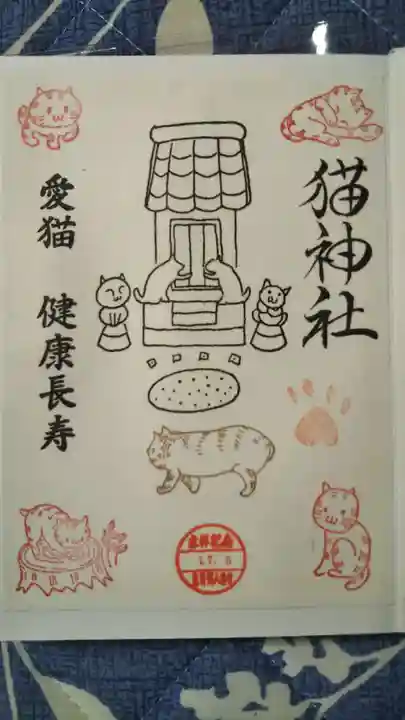 猫神社
愛猫 健康長寿
17. 8